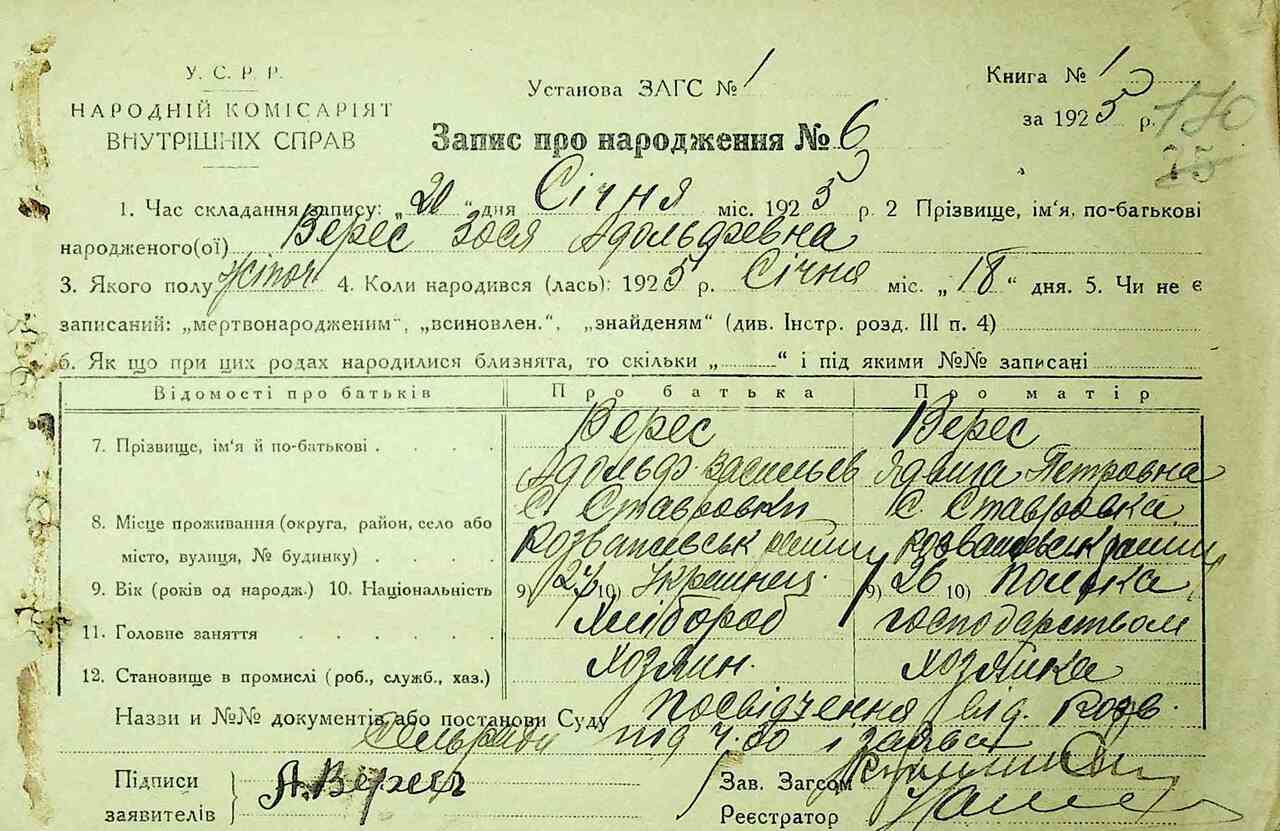 У. С. Р. Р.
НАРОДНІЙ КОМІСАРІЯТ
ВНУТРІШНІХ СПРАВ
Установа ЗАГС № 1
Книга № 1
за 1925 р.
170
25
Запис про народження № 6
1. Час складання запису: „20“ дня Січня міс. 1925 р. 2 Прізвище, ім‘я, по-батькові
народженого(ої) Верес Зося Адольфевна
3. Якого полу жіноч 4. Коли народився (лась): 1925 р. Січня міс. „18“ дня. 5. Чи не є
записаний: „мертвонародженим“, „всиновлен.“, „знайденям“ (див. Інстр. розд. III п. 4)
6. Як що при цих родах народилися близнята, то скільки „ “ і під якими №№ записані
Відомості про батьків Про батька Про матір
7. Прізвище, ім‘я й по-батькові Верес Верес
Адольф Васильев Ядвига Петровна
8. Місце проживання (округа, район, село або С Ставровки С. Ставровка
місто, вулиця, № будинку) Розважевськ Розважевськ
9. Вік (років од народж.) 10. Національність 9) 27 10) Украинец. 9) 26 10) Полька
11. Головне заняття Хлібороб господарством
12. Становище в промислі (роб., служб., хаз.) Хозяин. Хозяйка
Назви и №№ документів або постанови Суду Посвідчення від. Розв.
Сельради під ч. 80 і заява
Підписи
заявителів А. Верес
Зав. Загсом
Реєстратор